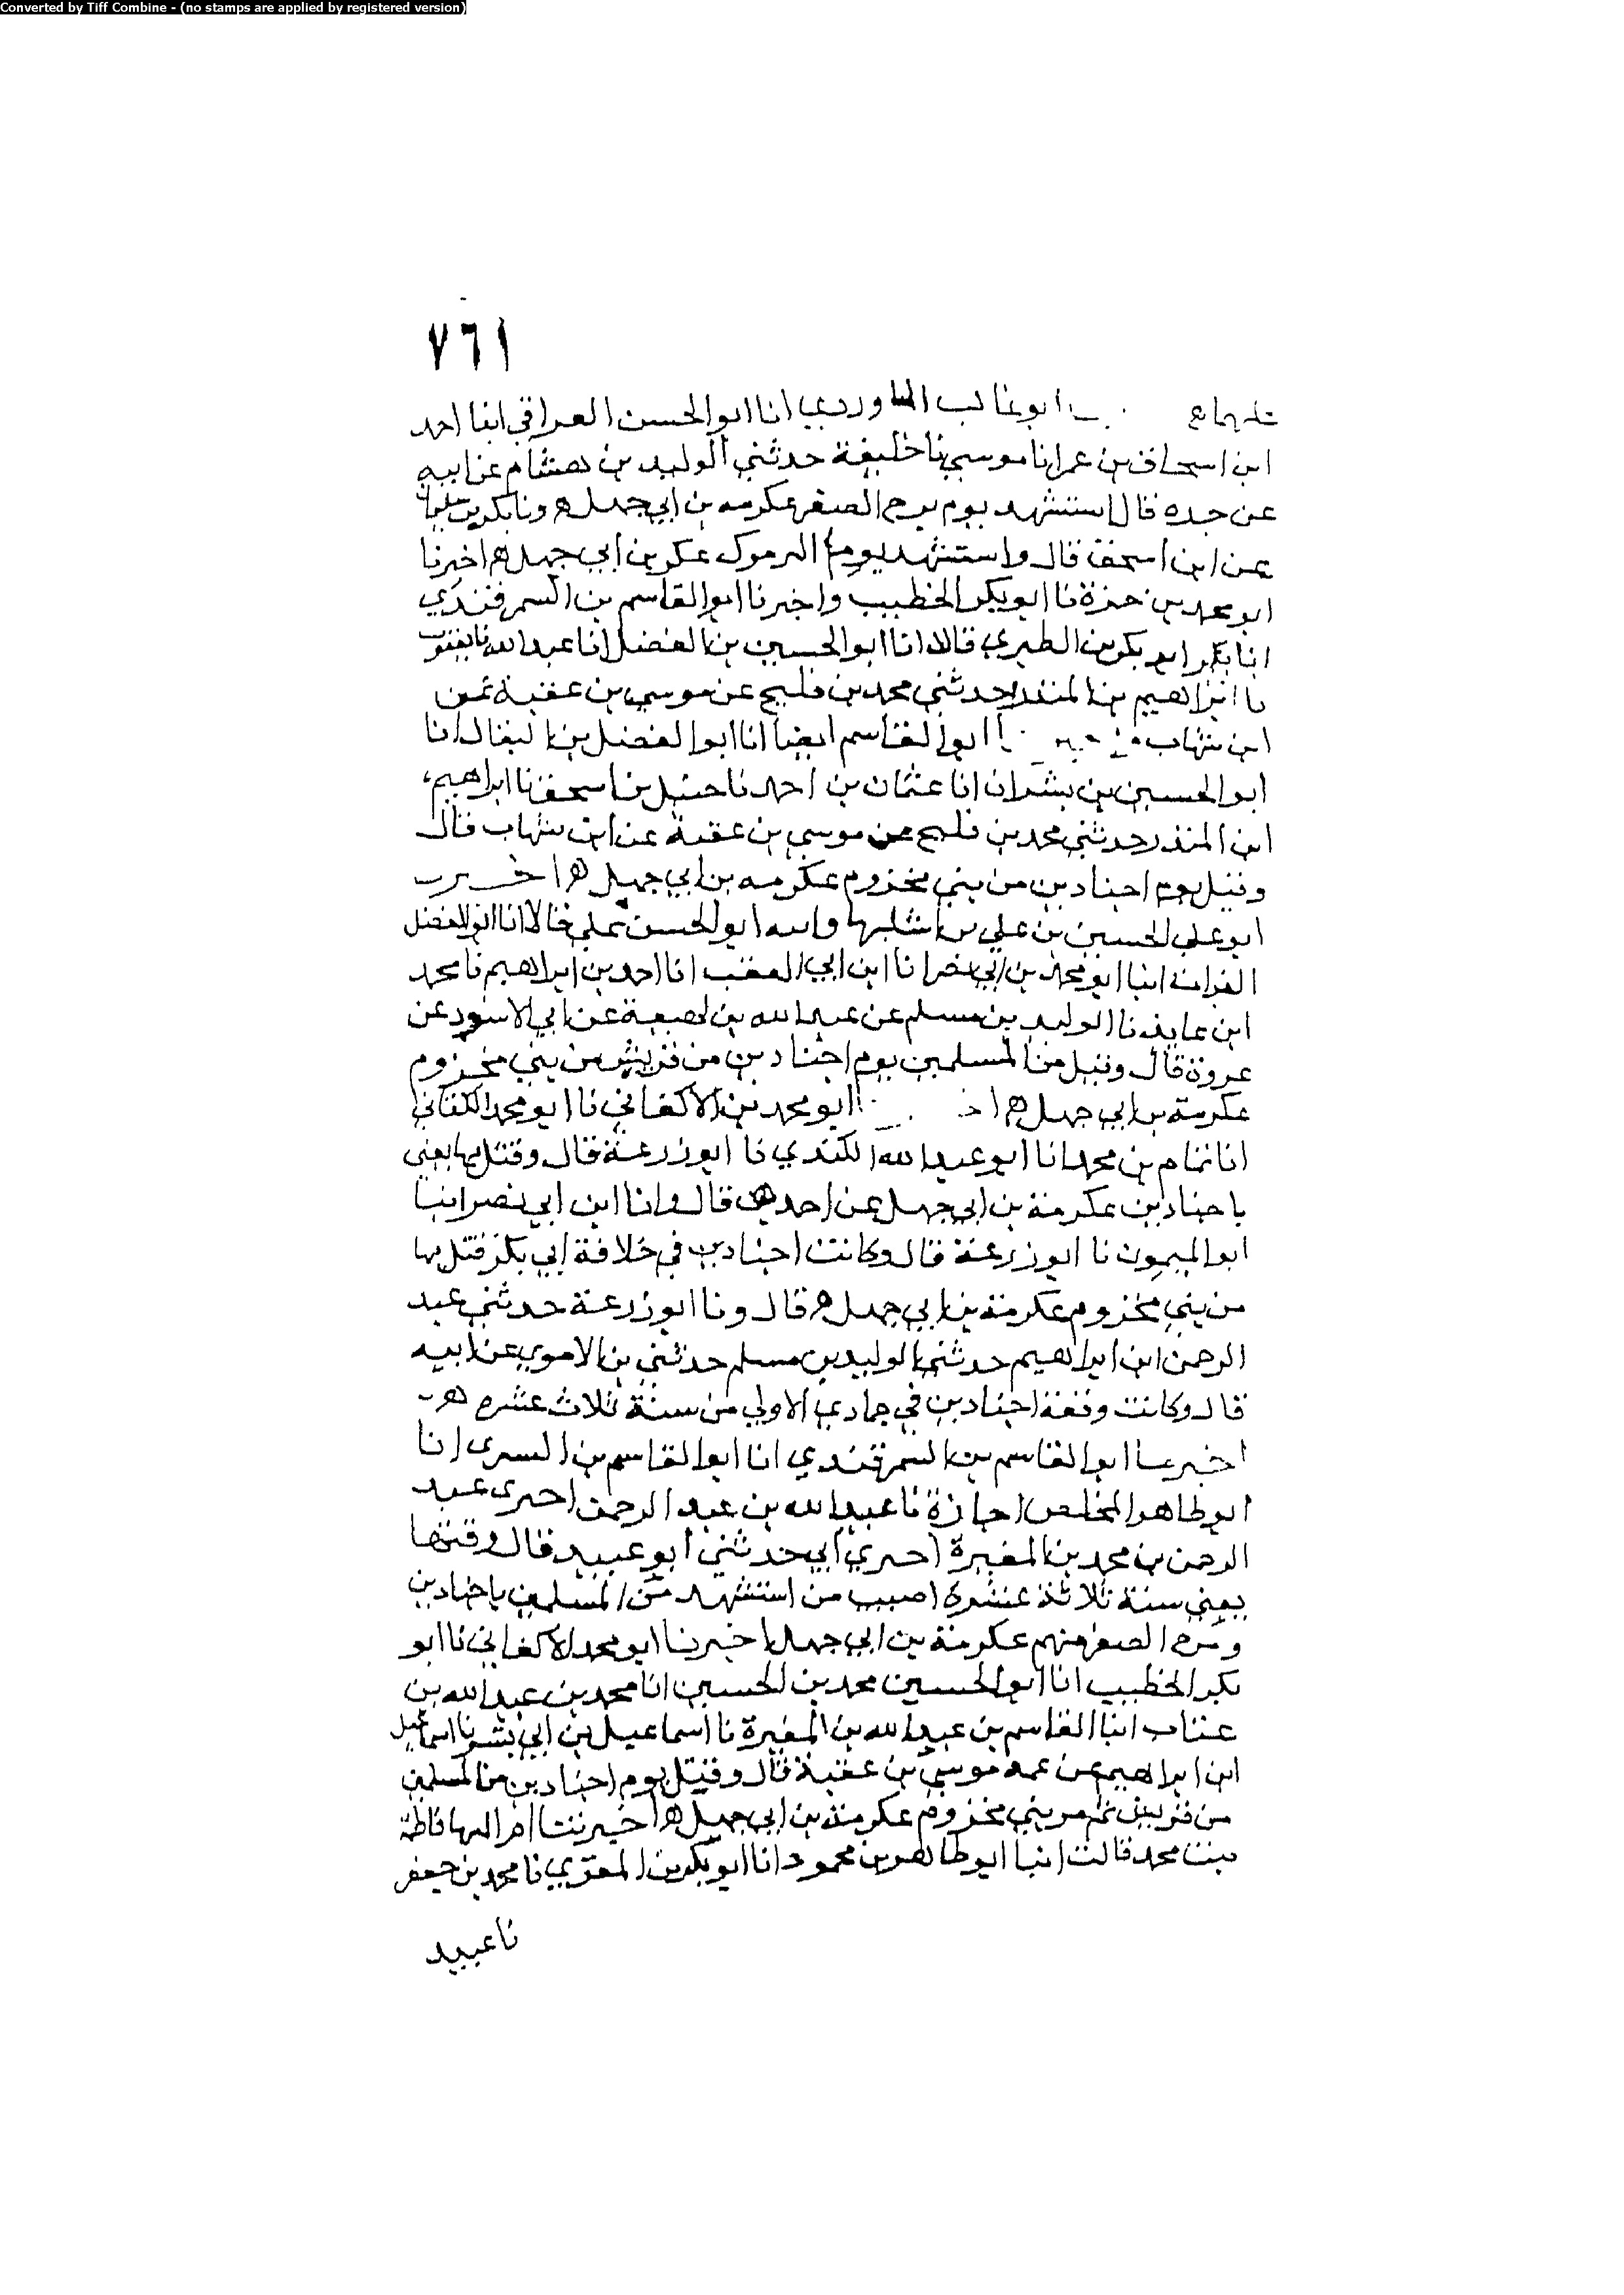 Converted by Tiff Combine - (no stamps are applied by registered version)
٧٦١
ابو غالب الماوردي انا ابوالحسن العراقي انبا احمد
ابن اسحاق بن عمرانا موسي نا خليفة حدثني الوليد بن هشام عن ابيه
عن جده قال استشهد يوم مرج الصفر عكرمه بن ابي جهل ه ونا بكر بن سليمان
عن ابن اسحق قال واستشهد يوم اليرموك عكر بن ابي جهل ه اخبرنا
ابو محمد بن حمزة نا ابو بكر الخطيب واخبرنا ابو القاسم بن السمرقندي
انا ابو بكر بن الطبري قالا انا ابوالحسين بن الفضل انا عبد الله نا يعقوب
نا ابراهيم بن المنذر حدثني محمد بن فليح عن موسي بن عقبة عن
ابن شهاب ابو القاسم ايضا انا ابوا لفضل بن البقال انا
ابوالحسين بن بشران انا عثمان بن احمد نا حنبل بن اسحق نا ابراهيم
ابن المنذر حدثني محمد بن فليح عن موسي بن عقبة عن ابن شهاب قال
وقتل يوم اجنادين من بني مخزوم عكرمه بن ابي جهل ه اخبرنا
ابو علي الحسين بن علي بن اشليها وابنه ابو الحسن علي قالا انا ابوالفضل
الفرات انبا ابو محمد بن ابي نصر انا ابن ابي العقب انا احمد بن ابراهيم نا محمد
ابن عايذ نا الوليد بن مسلم عن عبد الله بن لهيعة عن ابي الاسود عن
عروة قال وقتل من المسلمين يوم اجنادين من قريش من بني مخزوم
عكرمة بن ابي جهل ه ابو محمد بن الاكفاني نا ابو محمد الكتاني
انا تمام بن محمد انا ابو عبد الله الكندي نا ابو زرعة قال وقتل بها يعني
باجنادين عكرمة بن ابي جهل عن احمد ه قال وانا ابن ابي نصر انبا
ابوالميمون نا ابوزرعة قال وكانت اجنادين في خلافة ابي بكر قتل بها
من بني مخزوم عكرمة بن ابي جهل ه قال ونا ابوزرعة حدثني عبد
الرحمن ابن ابراهيم حدثنا الوليد بن مسلم حدثني بن الاموي عن ابيه
قال وكانت وقعة اجنادين في جمادي الاولي من سنة ثلاث عشره ه
اخبرنا ابوا لقاسم بن السمرقندي انا ابوا لقاسم بن البسري انا
ابو طاهر المخلص اجازة نا عبيد الله بن عبد الرحمن اخبرني عبد
الرحمن بن محمد بن المغيرة اخبرني ابي حدثني ابو عبيد قال وقتها
يعني سنة ثلاثة عشرة اصيب من استشهد من المسلمين باجنادين
ومرج الصفر منهم عكرمة بن ابي جهل اخبرنا ابو محمد الاكفاني نا ابو
بكر الخطيب انا ابوالحسين محمد بن الحسين انا محمد بن عبد الله بن
عتاب انبا القاسم بن عبد الله بن المغيرة نا اسماعيل بن ابي نا اسماعيل
ابن ابراهيم عن عمه موسي بن عقبة قال وقتل يوم اجنادين من المسلمين
من قريش ثم من بني مخزوم عكرمة بن ابي جهل ه اخبرتنا ام البها فاطمة
بنت محمد قالت انبا ابو طاهر بن محمود انا ابو بكر بن المقري نا محمد بن جعفر
نا عبيد